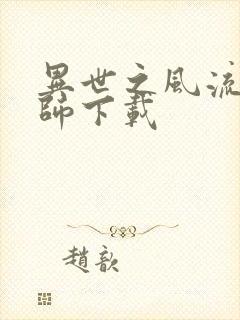 異世之風流
師下載
趙歆